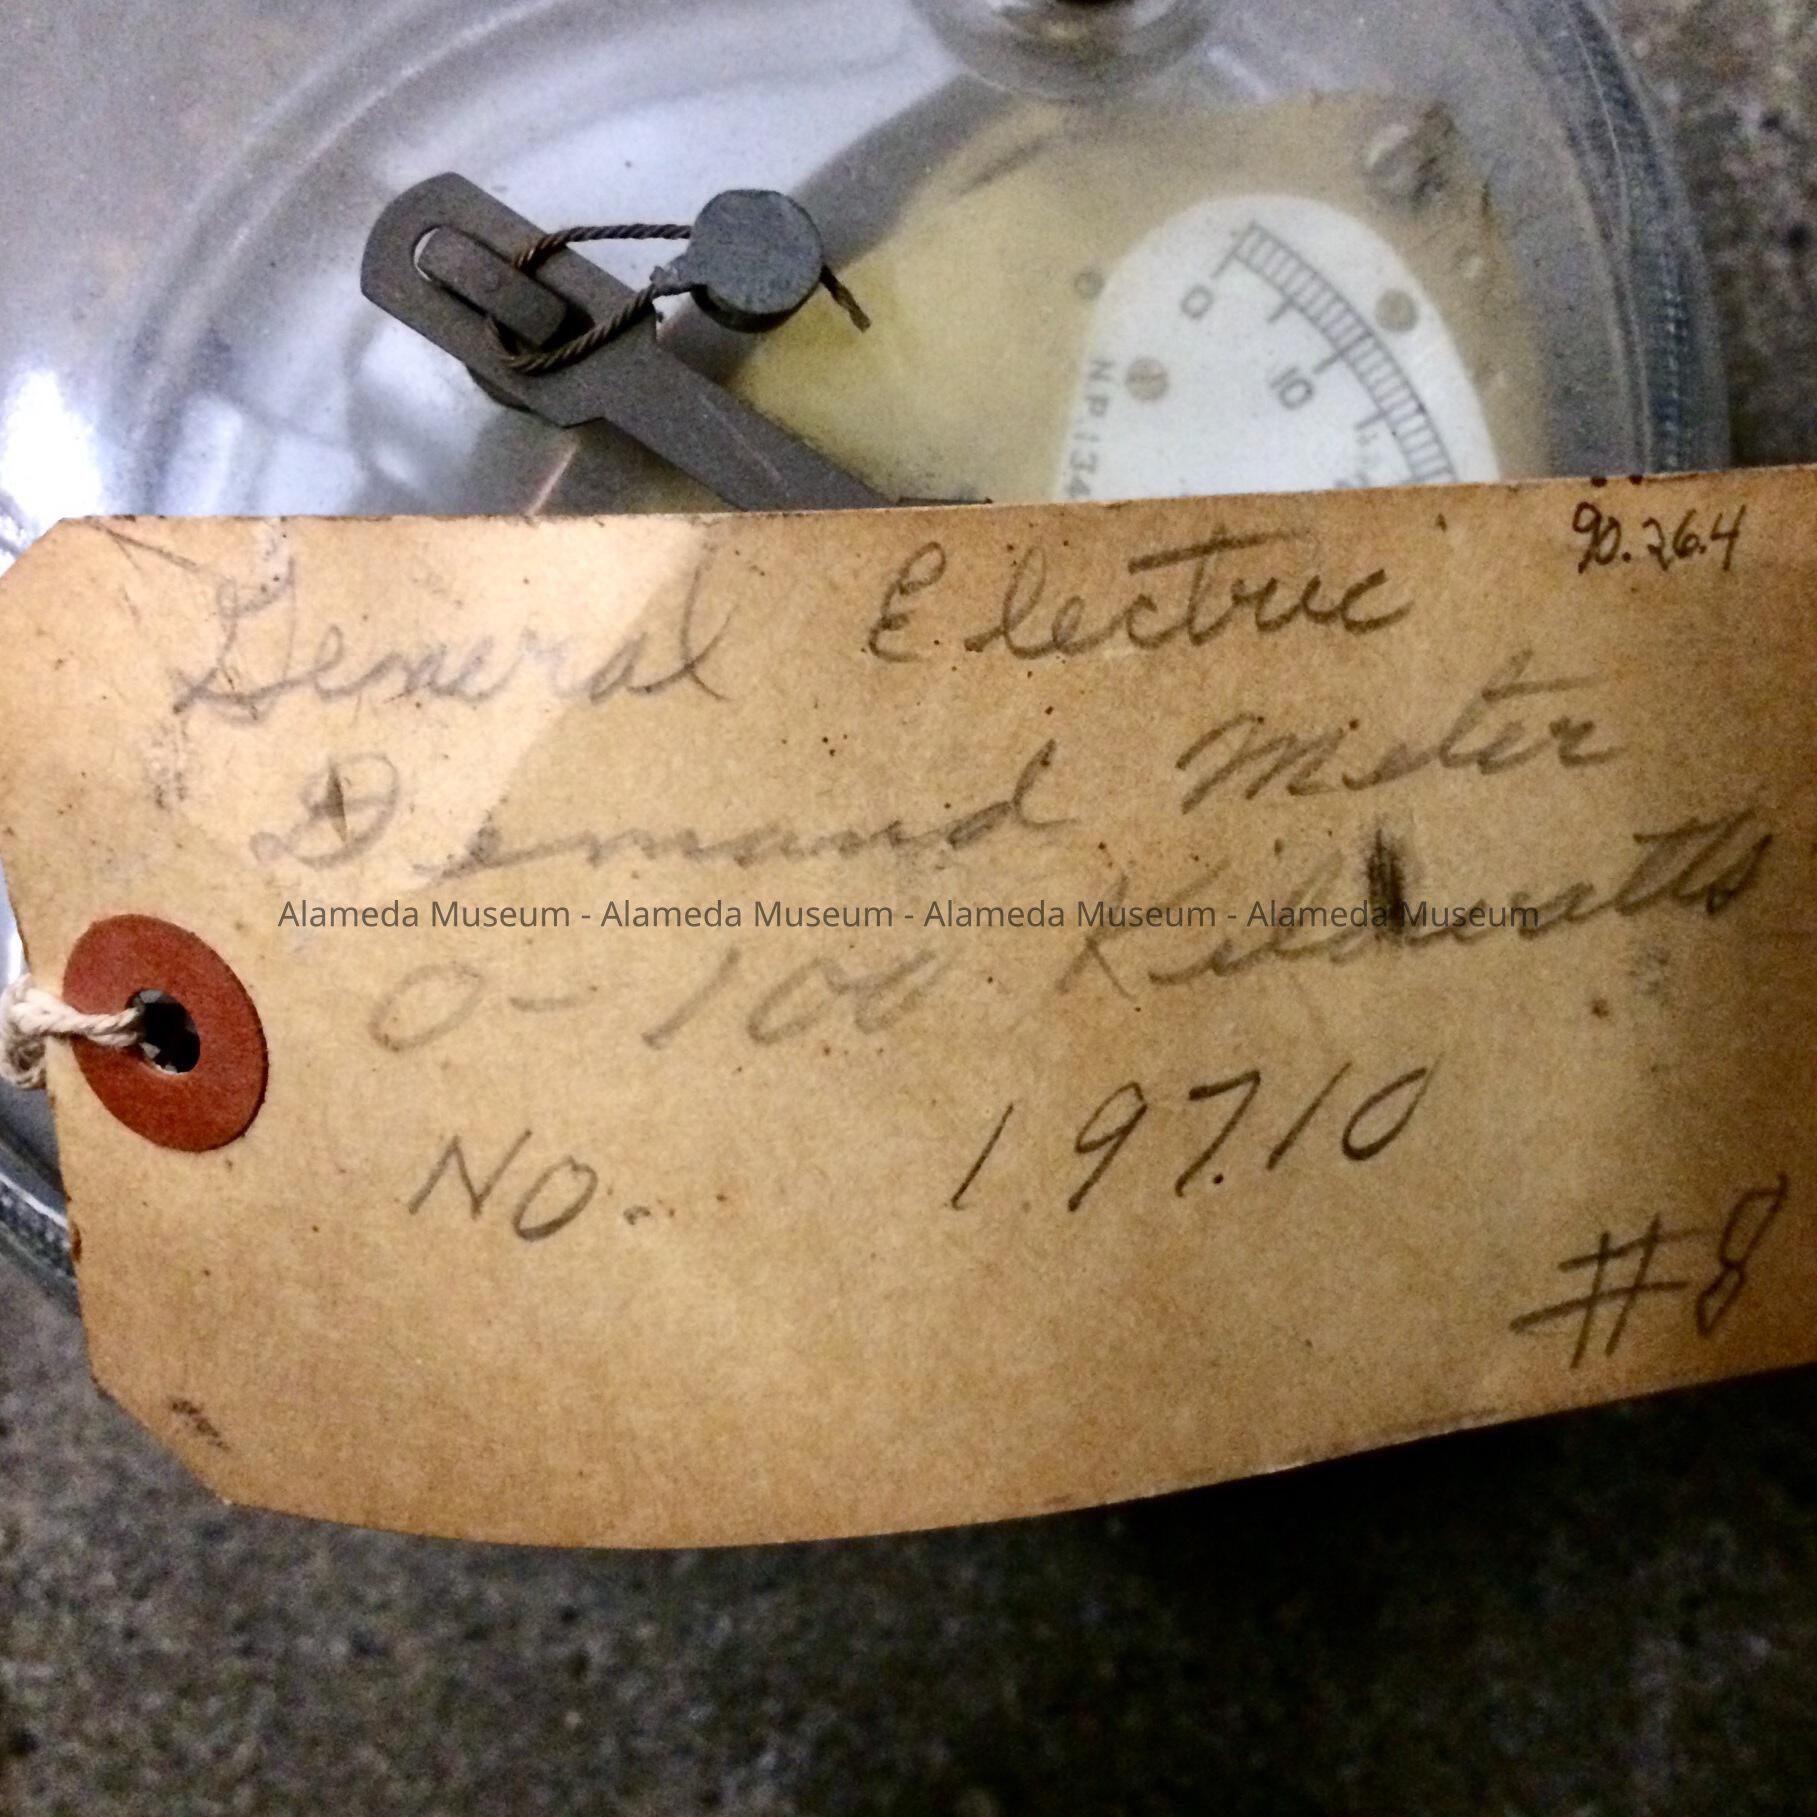 0
10
N.P.134
90.26.4
General Electric
Demand Meter
0-100 Kilowatts
Alameda Museum - Alameda Museum - Alameda Museum - Alameda Museum
NO. 19710
#8